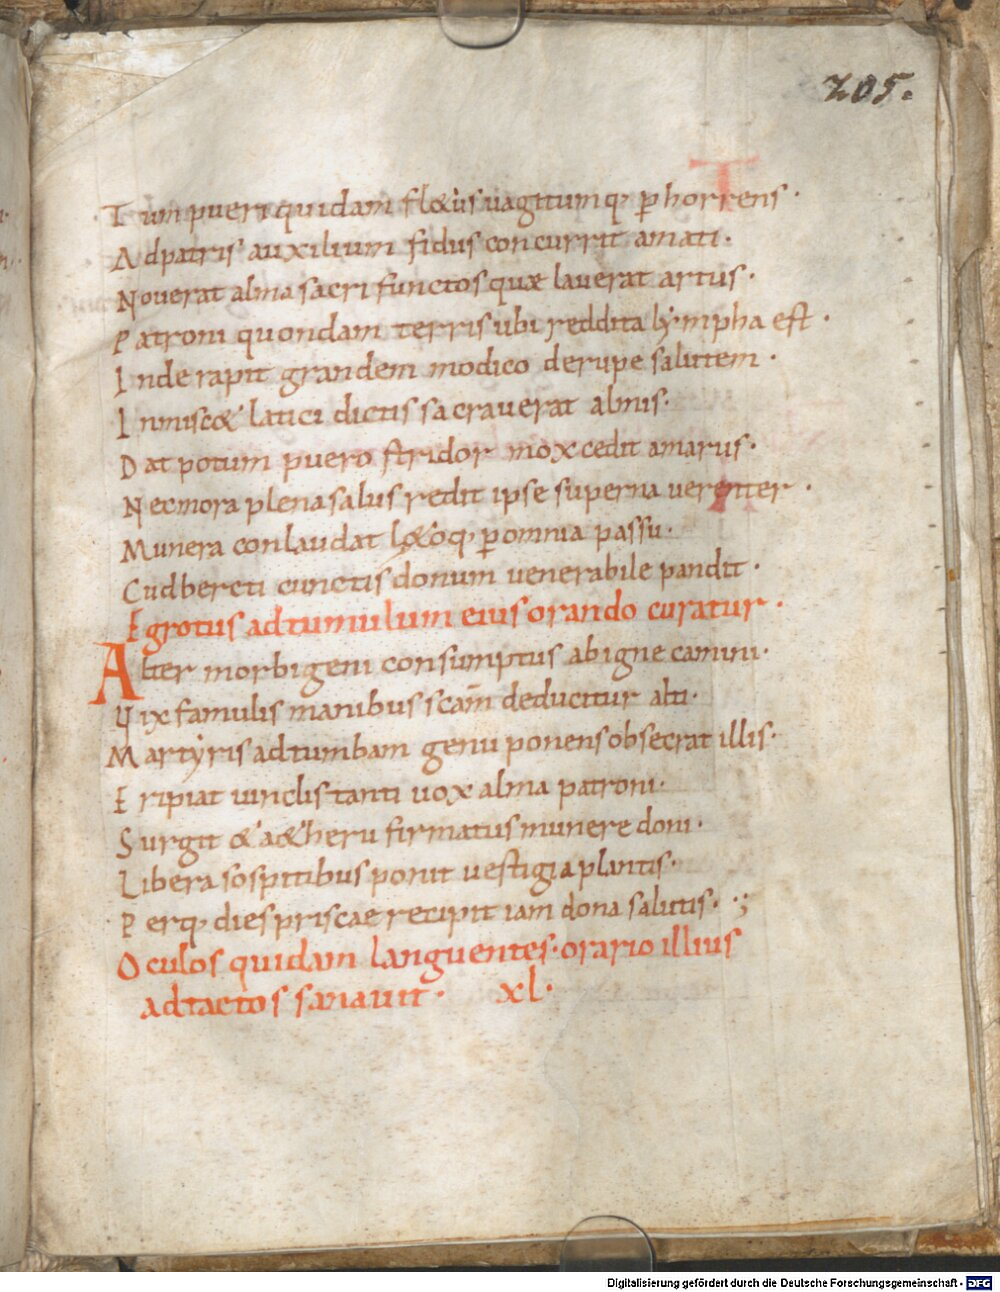 205.
Tum pueri quidam fletus uagitumq; phorrens·
Ad patris auxilium fidus concurrit amati·
Nouerat alma sacri functos quæ lauerat artus·
Patroni quondam terris ubi reddita lympha est·
Inde rapit grandem modico de rupe salutem·
Inmiscet latici dictis sacrauerat almis·
Dat potum puero stridor mox cedit amarus·
Nec mora plena salus redit ipse superna uerenter·
Munera conlaudat letoq; p omnia passu·
Cudbercti cunctis donum uenerabile pandit·
Egrotus ad tumulum eius orando curatur·
Alter morbigeni consumptus ab igne camini·
Vix famulis manibus scam̄ deducitur ati·
Martyris ad tumbam genu ponens obsecrat illis·
Eripiat uinclis tanti uox alma patroni·
Surgit & a&heru firmatus munere doni·
Libera sospitibus ponit uestigia plantis·
Perq; dies priscae recipit iam dona salutis· ·;
Oculos quidam languentes· orario illius
adtactos sanauit· xl·
Digitalisierung gefördert durch die Deutsche Forschungsgemeinschaft - DFG